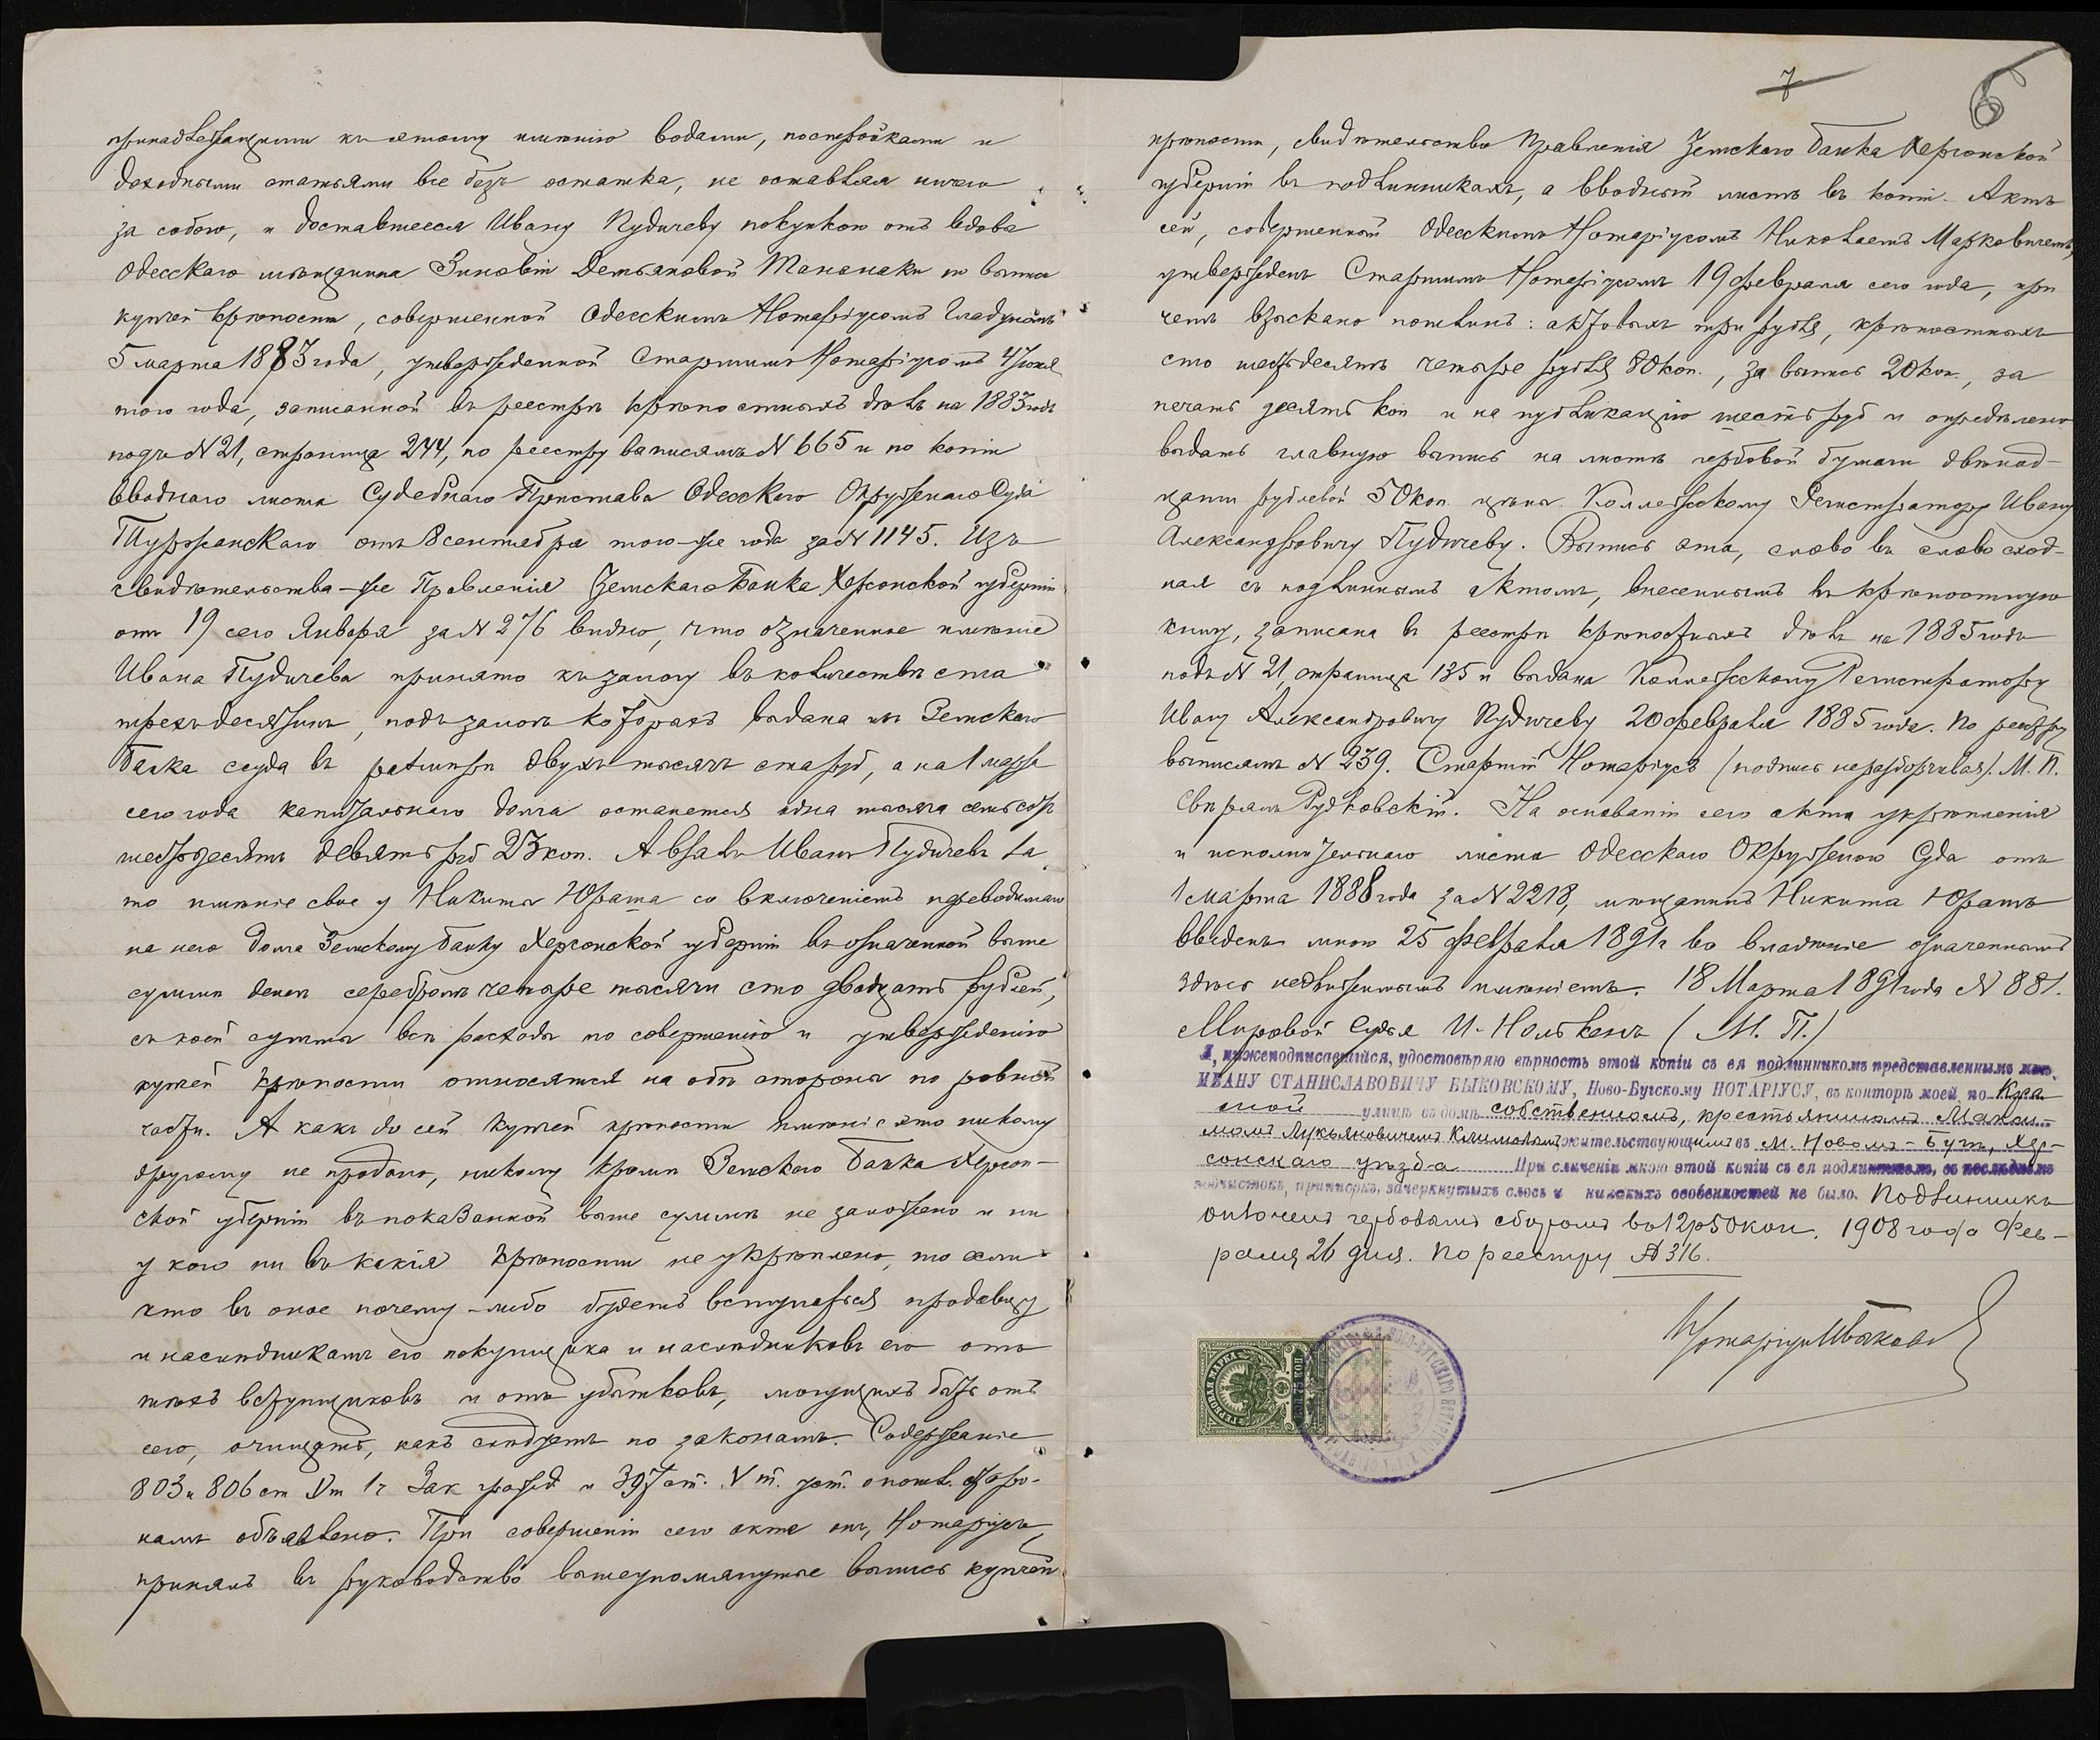 принадлежащими къ этому имѣнію водами, постройками и
доходными статьями все безъ остатка, не оставляя ничего
за собою, и доставшееся Ивану Пудичеву покупкою отъ вдовы
Одесскаго мѣщанина Зиновіи Демьяновой Мананаки по выписи
купчей крѣпости, совершенной Одесскимъ Нотаріусомъ Гладунамъ
5 марта 1883 года, утвержденной Старшимъ Нотаріусомъ 4 Іюня
того года, записанной въ реестрѣ крѣпостныхъ дѣлъ на 1883 годъ
подъ N 21, страница 244, по реестру выписямъ N 665 и по копіи
вводнаго листа Судебнаго Пристава Одесскаго Окружнаго Суда
Туржанскаго отъ 8 сентября того-же года за N 1145. Изъ
свидѣтельства-же Правленія Земскаго Банка Херсонской губерніи
отъ 19 сего Января за N 276 видно, что означенное имѣніе
Ивана Пудичева принято къ залогу въ количествѣ ста
трехъ десятинъ, подъ залогъ которыхъ выдана изъ Земскаго
Банка ссуда въ размѣрѣ двухъ тысячъ ста руб, а на 1 марта
сего года капитальнаго долга останется одна тысяча семьсотъ
шестьдесятъ девять руб 23 коп. А взялъ Иванъ Пудичевъ за
то имѣніе свое у Никиты Юраша со включеніемъ переводимаго
на него долга Земскому Банку Херсонской губерніи въ означенной выше
суммѣ денегъ серебромъ четыре тысячи сто двадцать рублей,
съ коей суммы всѣ расходы по совершенію и утвержденію
купчей крѣпости относятся на обѣ стороны по ровной
части. А какъ до сей купчей крѣпости имѣніе это никому
другому не продано, никому кромѣ Земскаго Банка Херсон-
ской губерніи въ показанной выше суммѣ не заложено и ни
у кого ни въ какія крѣпости не укрѣплено, то если
кто въ оное почему-либо будетъ вступаться продавцу
и наслѣдникамъ его покупщика и наслѣдниковъ его отъ
тѣхъ вступщиковъ и отъ убытковъ, могущихъ быть отъ
сего, очищать, какъ слѣдуетъ по законамъ. Содержаніе
803 и 806 ст X т 1 ч Зак гражд и 397 ст. V т. уст. о пошл. сторо-
намъ объявлено. При совершеніи сего акта онъ, Нотаріусъ,
принялъ въ руководство вышеупомянутые выпись купчей
7 6
крѣпости, свидѣтельство Правленія Земскаго Банка Херсонской
губерніи въ подлинникахъ, а вводный листъ въ копіи. Актъ
сей, совершенный Одесскимъ Нотаріусомъ Николаемъ Марковичемъ,
утвержденъ Старшимъ Нотаріусомъ 19 февраля сего года, при
чемъ взыскано пошлинъ: актовыхъ три рубля, крѣпостныхъ
сто шестьдесятъ четыре рубля 80 коп., за выпись 20 коп., за
печать десять коп и на публикацію шесть руб и опредѣлено
выдать главную выпись на листѣ гербовой бумаги двѣнад-
цати рублевой 50 коп. цѣны Коллежскому Регистратору Ивану
Александровичу Пудичеву. Выпись эта, слово въ слово сход-
ная съ подлиннымъ актомъ, внесеннымъ въ крѣпостную
книгу, записана въ реестрѣ крѣпостныхъ дѣлъ на 1885 годъ
подъ N 21, страница 135 и выдана Коллежскому Регистратору
Ивану Александровичу Пудичеву 20 февраля 1885 года. По реестру
выписямъ N 239. Старшій Нотаріусъ (подпись неразборчивая). М. П.
Свѣрялъ Рудковскій. На основаніи сего акта укрѣпленія
и исполнительнаго листа Одесскаго Окружнаго Суда отъ
1 марта 1888 года за N 2218, мѣщанинъ Никита Юрашъ
введенъ мною 25 февраля 1891 г во владѣніе означеннымъ
здѣсь недвижимымъ имѣніемъ. 18 Марта 1891 года N 881.
Мировой Судья И. Нолькенъ (М. П.)
Я, нижеподписавшійся, удостовѣряю вѣрность этой копіи съ ея подлинникомъ представленнымъ мнѣ
ИВАНУ СТАНИСЛАВОВИЧУ БЫКОВСКОМУ, Ново-Бугскому НОТАРІУСУ, въ конторѣ моей, по
улицѣ въ домѣ собственномъ, крестьяниномъ
Лукьяновичемъ жительствующимъ въ М. Новомъ-Бугѣ, Хер-
сонскаго уѣзда При сличеніи мною этой копіи съ ея подлинникомъ, въ послѣднемъ
подчистокъ, приписокъ, зачеркнутыхъ словъ и никакихъ особенностей не было. Подлинникъ
оплоченъ гербовымъ сборомъ въ 12 р 50 коп. 1908 года Фев-
раля 26 дня. По реестру N 316.
Нотаріусъ Быковскій
ГЕРБОВАЯ МАРКА
75 КОП.